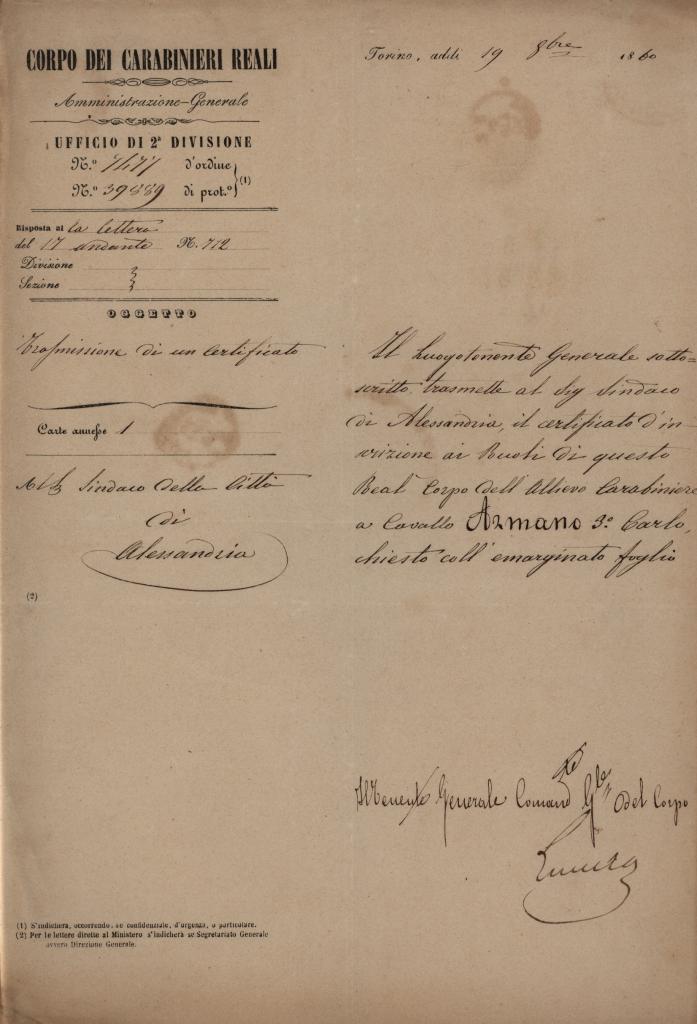 CORPO DEI CARABINIERI REALI
Amministrazione-Generale
UFFICIO DI 2ª DIVISIONE
N.º 7477 d'ordine
N.º 39889 di prot.º (1)
Risposta al la lettera
del 17 andante N. 712
Divisione
Sezione
OGGETTO
Trasmissione di un Certificato
Carte annesse 1
Sindaco della Città
di
Alessandria
(2)
Torino, addì 19 8bre 1860
Il Luogotenente Generale sotto=
scritto trasmette al Sig Sindaco
di Alessandria, il certificato d'in=
scrizione ai Ruoli di questo
Real Corpo dell'Allievo Carabiniere
a Cavallo Armano 3º Carlo,
chiesto coll'emarginato foglio
Generale Comand Gle del Corpo
(1) S'indicherà, occorrendo, se confidenziale, d'urgenza, o particolare.
(2) Per le lettere dirette al Ministero s'indicherà se Segretariato Generale
ovvero Direzione Generale.